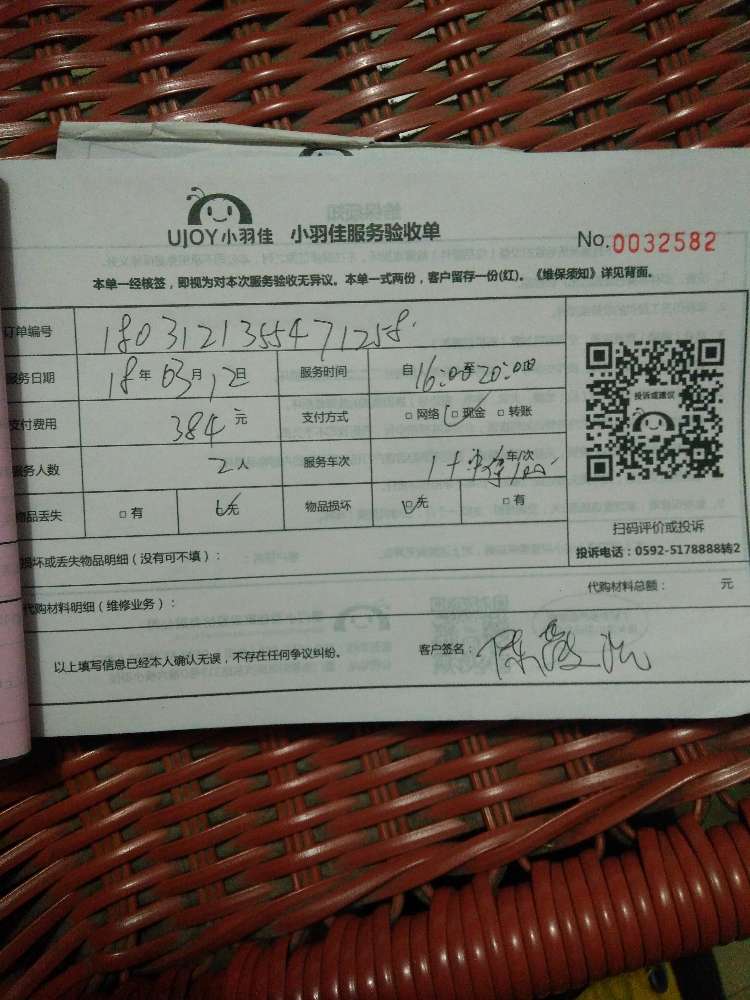 UJOY小羽佳 小羽佳服务验收单 No.0032582
本单一经核签，即视为对本次服务验收无异议。本单一式两份，客户留存一份(红)。《维保须知》详见背面。
订单编号 1803121355471258
服务日期 18年03月12日 服务时间 自16:00至20:00时
支付费用 384元 支付方式 □网络 □现金 □转账
服务人数 2人 服务车次 车/次
物品丢失 □有 □无 物品损坏 □无 □有
投诉或建议
扫码评价或投诉
投诉电话：0592-5178888转2
损坏或丢失物品明细（没有可不填）：
代购材料明细（维修业务）： 代购材料总额： 元
以上填写信息已经本人确认无误，不存在任何争议纠纷。 客户签名：陈